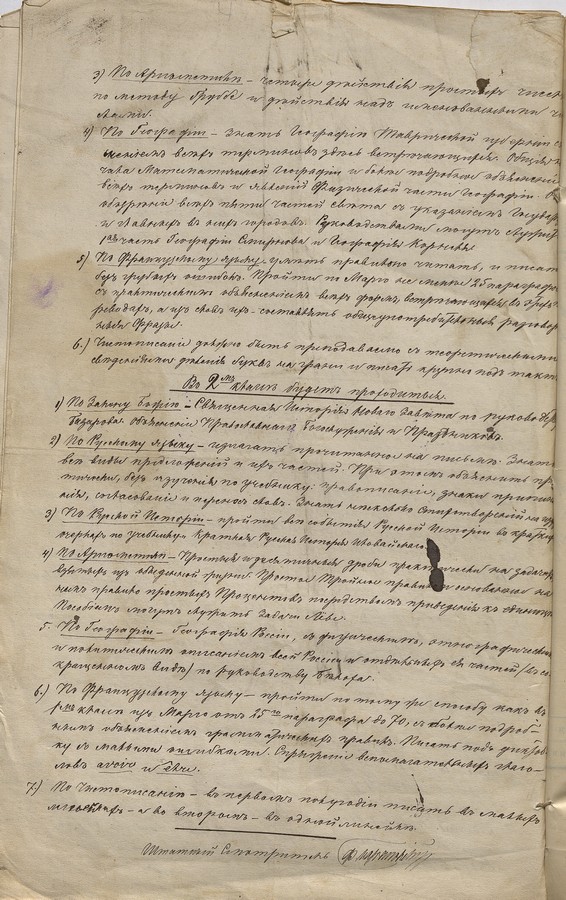 3) По Арифметикѣ – четыре дѣйствія простыхъ чиселъ
по методу Грубе и дѣйствія надъ именованными чи-
слами.
4) По Географіи – знать Географію Таврической губерніи съ
всѣхъ терминовъ здѣсь встрѣчающихся. Общія
Математической Географіи и болѣе подробное объясненіе
всѣхъ терминовъ и явленій Физической части Географіи.
всѣхъ пяти частей свѣта съ указаніемъ Государ
и главныхъ въ нихъ городовъ. Руководствами могутъ служить
1ая часть Географіи Смирнова и Географія Корнеля
5) По Французскому языку умѣть правильно читать, и писать
безъ грубыхъ ошибокъ. Пройти по Марго не менѣе 25 параграф
съ практическимъ объясненіемъ всѣхъ формъ, встрѣчающихся въ
а изъ словъ ихъ составлять общеупотребительныя разговор
ныя фразы.
6.) Чистописаніе должно быть преподаваемо съ теоретическими
дѣленія буквъ на грани и писать крупно подъ тактъ
Во 2мъ классѣ будетъ проходиться.
1) По Закону Божію – Священная Исторія Новаго Завѣта по руковод
Базарова. Объясненія Православнаго Богослуженія и Праздниковъ.
2) По Русскому языку – излагать прочитанное на письмѣ. Знать
всѣ виды предложеній и ихъ частей. При этомъ объяснить пра
безъ изученія по учебнику: правописаніе, знаки препина
нія, согласованіе и переносъ словъ. Знать нѣсколько стихотвореній на из
3) По Русской Исторіи – пройти всѣ событія Русской Исторіи въ крат
очеркахъ по учебнику Краткая Русская Исторія Иловайскаго
4) По Арифметикѣ – Простыя и десятичныя дроби практически на задачах
взятыхъ изъ обыденной жизни. Простое Тройное правило основанное на
правило простыхъ Процентовъ посредствомъ приведенія къ единицѣ
Пособіемъ могутъ служить задачи Леве.
5. По Географіи – Географія Россіи, съ физическимъ, этнографическимъ
и политическимъ описаніемъ всей Россіи и отдѣльныхъ ея частей /въ со-
кращенномъ видѣ/ по руководству Бѣлоха.
6.) По Французскому языку – пройти по тому же способу какъ въ
1мъ классѣ изъ Марго отъ 25го параграфа до 70, съ болѣе подроб-
нымъ объясненіемъ грамматическихъ правилъ. Писать подъ диктов-
ку съ малыми ошибками. Спряженіе вспомагательныхъ глаго-
ловъ avoir и être.
7.) По Чистописанію – въ первомъ полугодіи писать въ малыхъ
а во второмъ – въ одной линейкѣ.
Штатный Смотритель